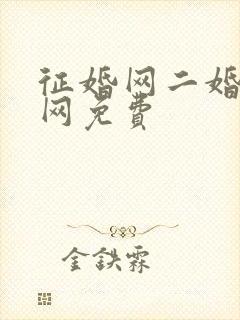 征婚网二婚
网免费
金鉄霖